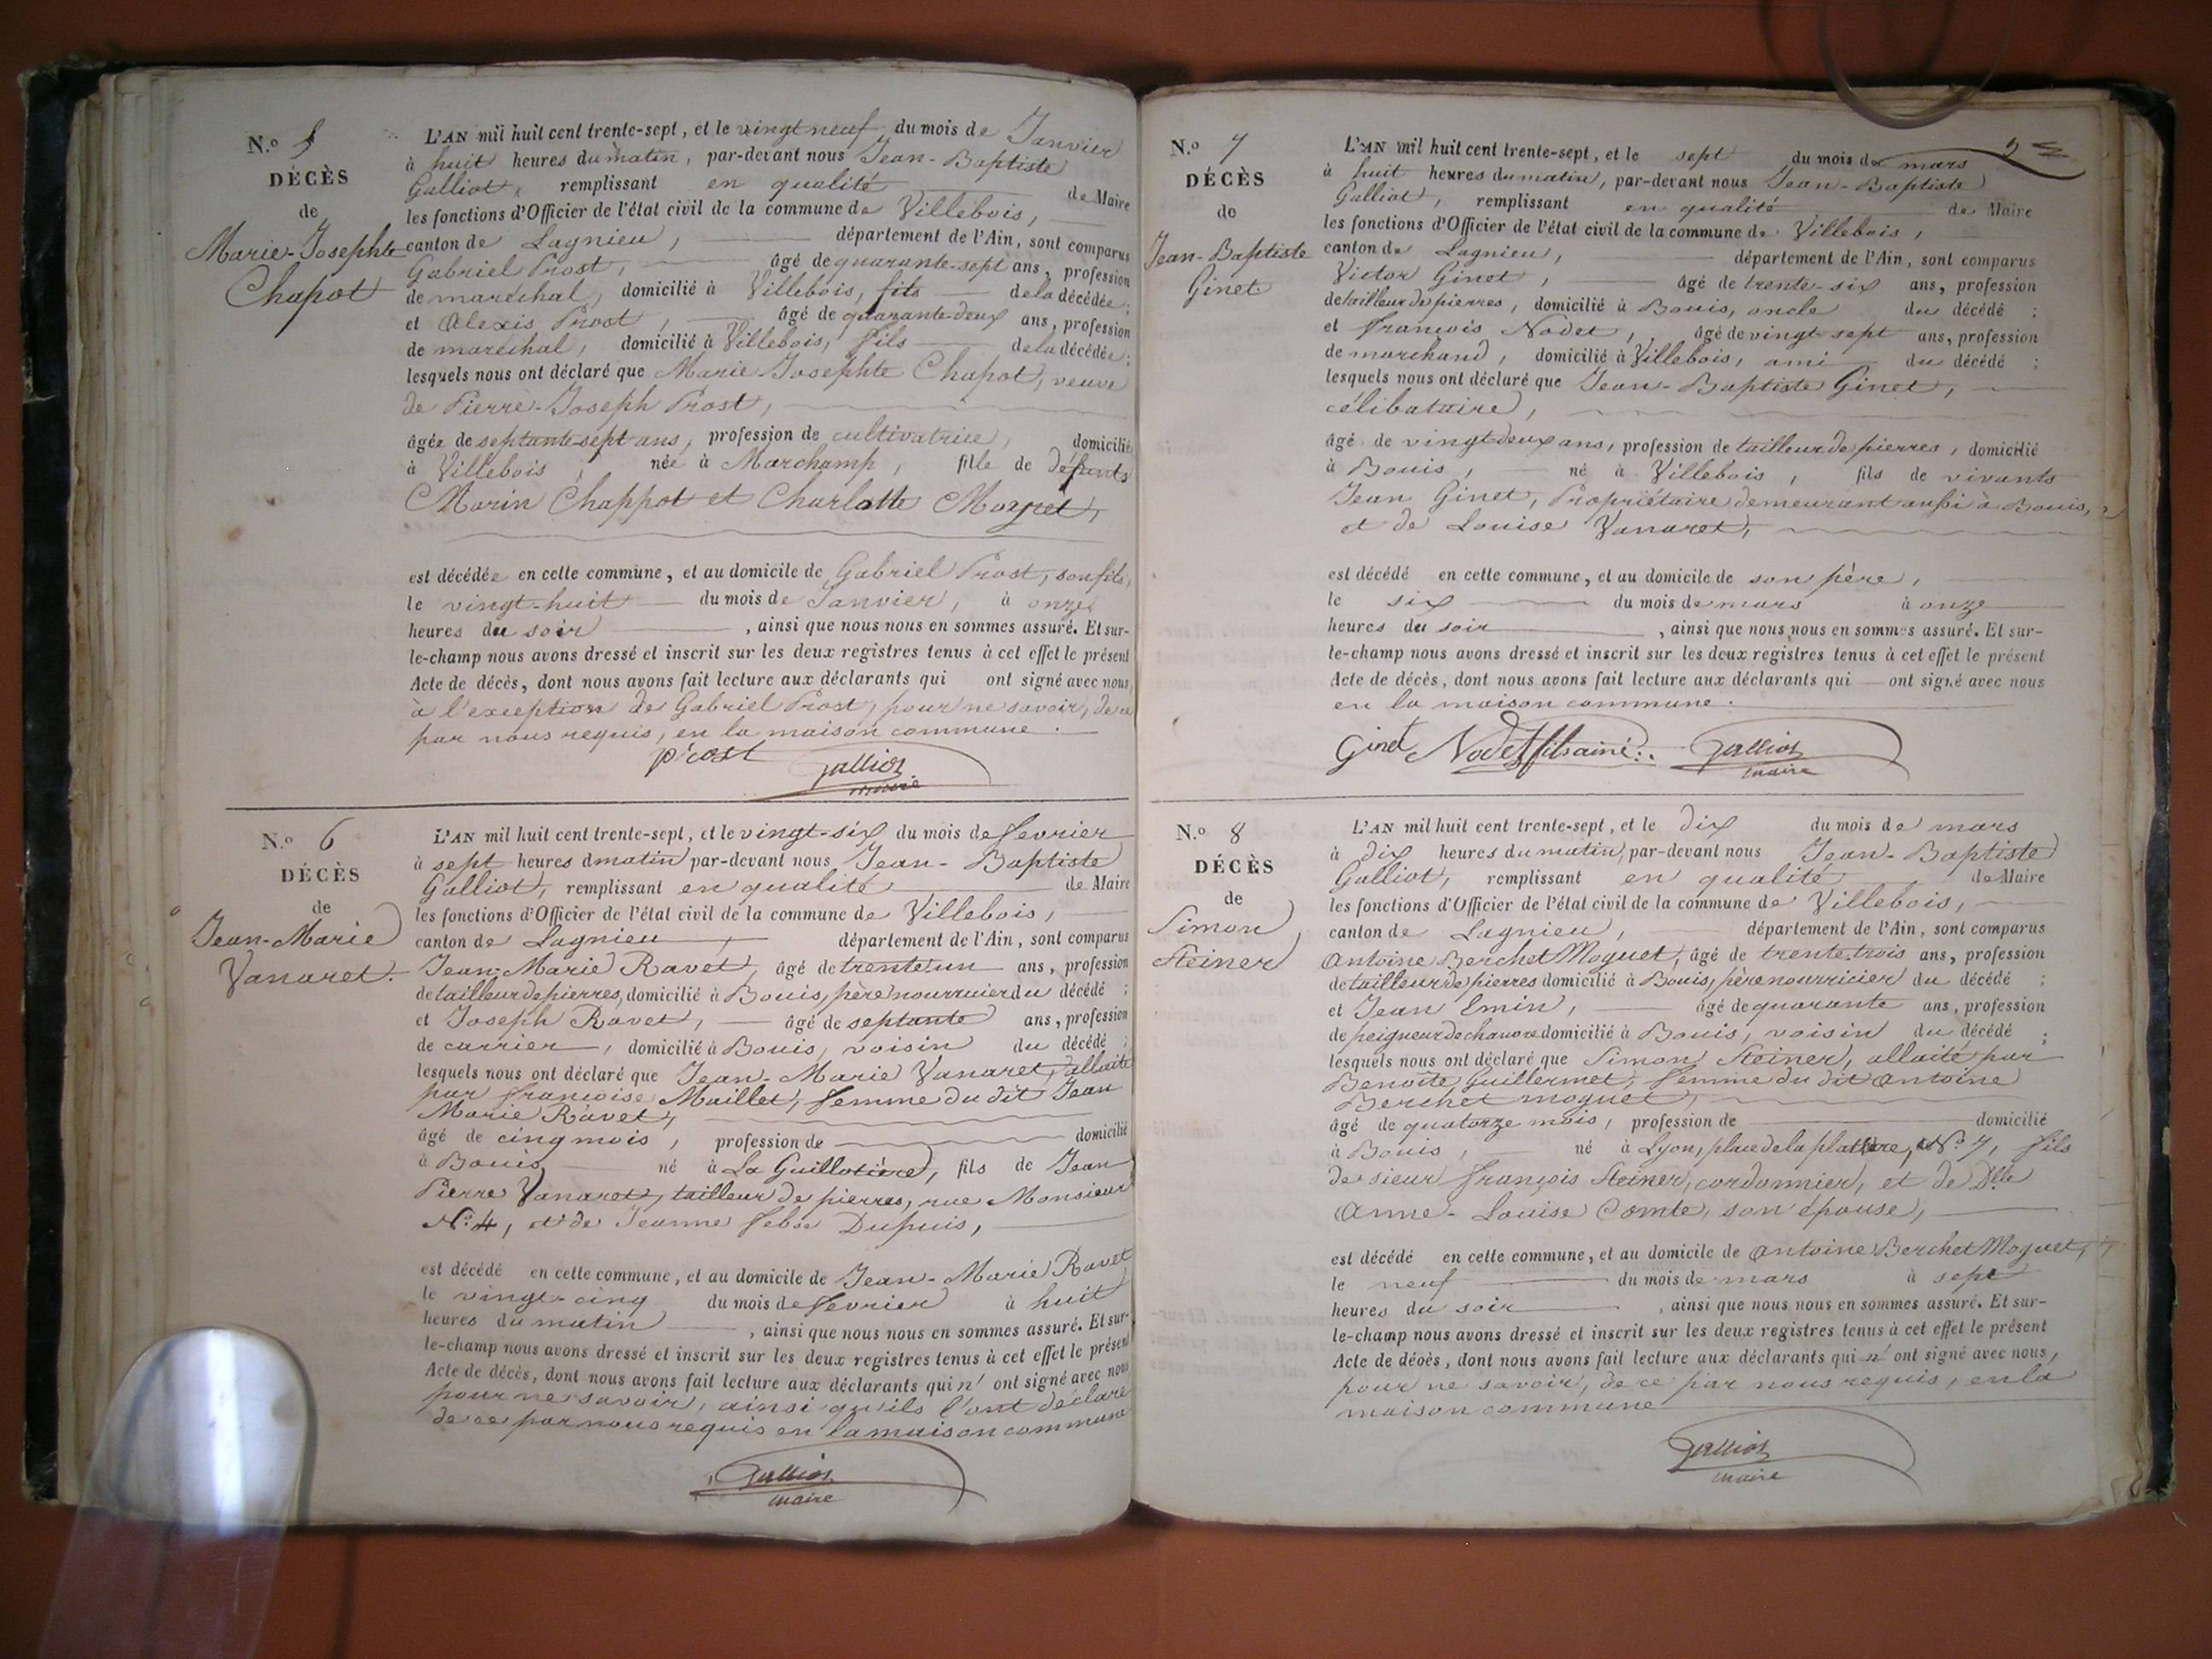 N.o 5
DÉCÈS
de
Marie-Josephte
Chapot
L'AN mil huit cent trente-sept, et le vingt neuf du mois de Janvier
à huit heures du matin, par-devant nous Jean-Baptiste
Galliot, remplissant en qualité de Maire
les fonctions d'Officier de l'état civil de la commune de Villebois,
canton de Lagnieu, département de l'Ain, sont comparus
Gabriel Prost, âgé de quarante-sept ans, profession
de maréchal, domicilié à Villebois, fils de la décédée;
et Alexis Prost, âgé de quarante-deux ans, profession
de maréchal, domicilié à Villebois, fils de la décédée;
lesquels nous ont déclaré que Marie Josephte Chapot, veuve
de Pierre-Joseph Prost,
âgée de septante-sept ans, profession de cultivatrice, domicilié
à Villebois, née à Marchamp, fille de défunts
Marin Chappot et Charlotte
est décédée en cette commune, et au domicile de Gabriel Prost, son fils,
le vingt-huit du mois de Janvier, à onze
heures du soir, ainsi que nous nous en sommes assuré. Et sur-
le-champ nous avons dressé et inscrit sur les deux registres tenus à cet effet le présent
Acte de décès, dont nous avons fait lecture aux déclarants qui ont signé avec nous,
à l'exception de Gabriel Prost, pour ne savoir, de ce
par nous requis, en la maison commune.
prost Galliot
maire
N.o 6
DÉCÈS
de
Jean-Marie
Vanaret.
L'AN mil huit cent trente-sept, et le vingt-six du mois de fevrier
à sept heures d matin par-devant nous Jean-Baptiste
Galliot, remplissant en qualité de Maire
les fonctions d'Officier de l'état civil de la commune de Villebois,
canton de Lagnieu, département de l'Ain, sont comparus
Jean-Marie Ravet, âgé de trente un ans, profession
de tailleur de pierres, domicilié à Bouis, père nourricier du décédé;
et Joseph Ravet, âgé de septante ans, profession
de carrier, domicilié à Bouis, voisin du décédé;
lesquels nous ont déclaré que Jean-Marie Vanaret, allaité
par françoise Maillet, femme du dit Jean
Marie Ravet,
âgé de cinq mois, profession de domicilié
à Bouis, né à La Guillotière, fils de Jean
Pierre Vanaret, tailleur de pierres, rue Monsieur
N.o 4, et de Jeanne Dupuis,
est décédé en cette commune, et au domicile de Jean-Marie Ravet
le vingt-cinq du mois de fevrier à huit
heures du matin, ainsi que nous nous en sommes assuré. Et sur-
le-champ nous avons dressé et inscrit sur les deux registres tenus à cet effet le présent
Acte de décès, dont nous avons fait lecture aux déclarants qui n'ont signé avec nous
pour ne savoir, ainsi qu'ils l'ont déclaré
de ce par nous requis en la maison commune
Galliot
maire
N.o 7
DÉCÈS
de
Jean-Baptiste
Ginet
L'AN mil huit cent trente-sept, et le sept du mois de mars
à huit heures du matin, par-devant nous Jean-Baptiste
Galliot, remplissant en qualité de Maire
les fonctions d'Officier de l'état civil de la commune de Villebois,
canton de Lagnieu, département de l'Ain, sont comparus
Victor Ginet, âgé de trente-six ans, profession
de tailleur de pierres, domicilié à Bouis, oncle du décédé;
et françois Nodet, âgé de vingt-sept ans, profession
de marchand, domicilié à Villebois, ami du décédé;
lesquels nous ont déclaré que Jean-Baptiste Ginet,
célibataire,
âgé de vingt-deux ans, profession de tailleur de pierres, domicilié
à Bouis, né à Villebois, fils de vivants
Jean Ginet, Propriétaire demeurant aussi à Bouis,
et de Louise Vanaret,
est décédé en cette commune, et au domicile de son père,
le six du mois de mars à onze
heures du soir, ainsi que nous nous en sommes assuré. Et sur-
le-champ nous avons dressé et inscrit sur les deux registres tenus à cet effet le présent
Acte de décès, dont nous avons fait lecture aux déclarants qui ont signé avec nous
en la maison commune.
Ginet Nodet fils ainé Galliot
maire
N.o 8
DÉCÈS
de
Simon
Steiner
L'AN mil huit cent trente-sept, et le dix du mois de mars
à dix heures du matin, par-devant nous Jean-Baptiste
Galliot, remplissant en qualité de Maire
les fonctions d'Officier de l'état civil de la commune de Villebois,
canton de Lagnieu, département de l'Ain, sont comparus
Antoine Berchet Moguet, âgé de trente-trois ans, profession
de tailleur de pierres domicilié à Bouis, père nourricier du décédé;
et Jean Emin, âgé de quarante ans, profession
de peigneur de chanvre domicilié à Bouis, voisin du décédé;
lesquels nous ont déclaré que Simon Steiner, allaité par
Benoîte Guillermet, femme du dit Antoine
Berchet moguet,
âgé de quatorze mois, profession de domicilié
à Bouis, né à Lyon, place de la platière, N.o 7, fils
de sieur françois Steiner, cordonnier, et de Dlle
Anne-Louise Comte, son épouse,
est décédé en cette commune, et au domicile de Antoine Berchet Moguet,
le neuf du mois de mars à sept
heures du soir, ainsi que nous nous en sommes assuré. Et sur-
le-champ nous avons dressé et inscrit sur les deux registres tenus à cet effet le présent
Acte de décès, dont nous avons fait lecture aux déclarants qui n'ont signé avec nous,
pour ne savoir, de ce par nous requis, en la
maison commune
Galliot
maire